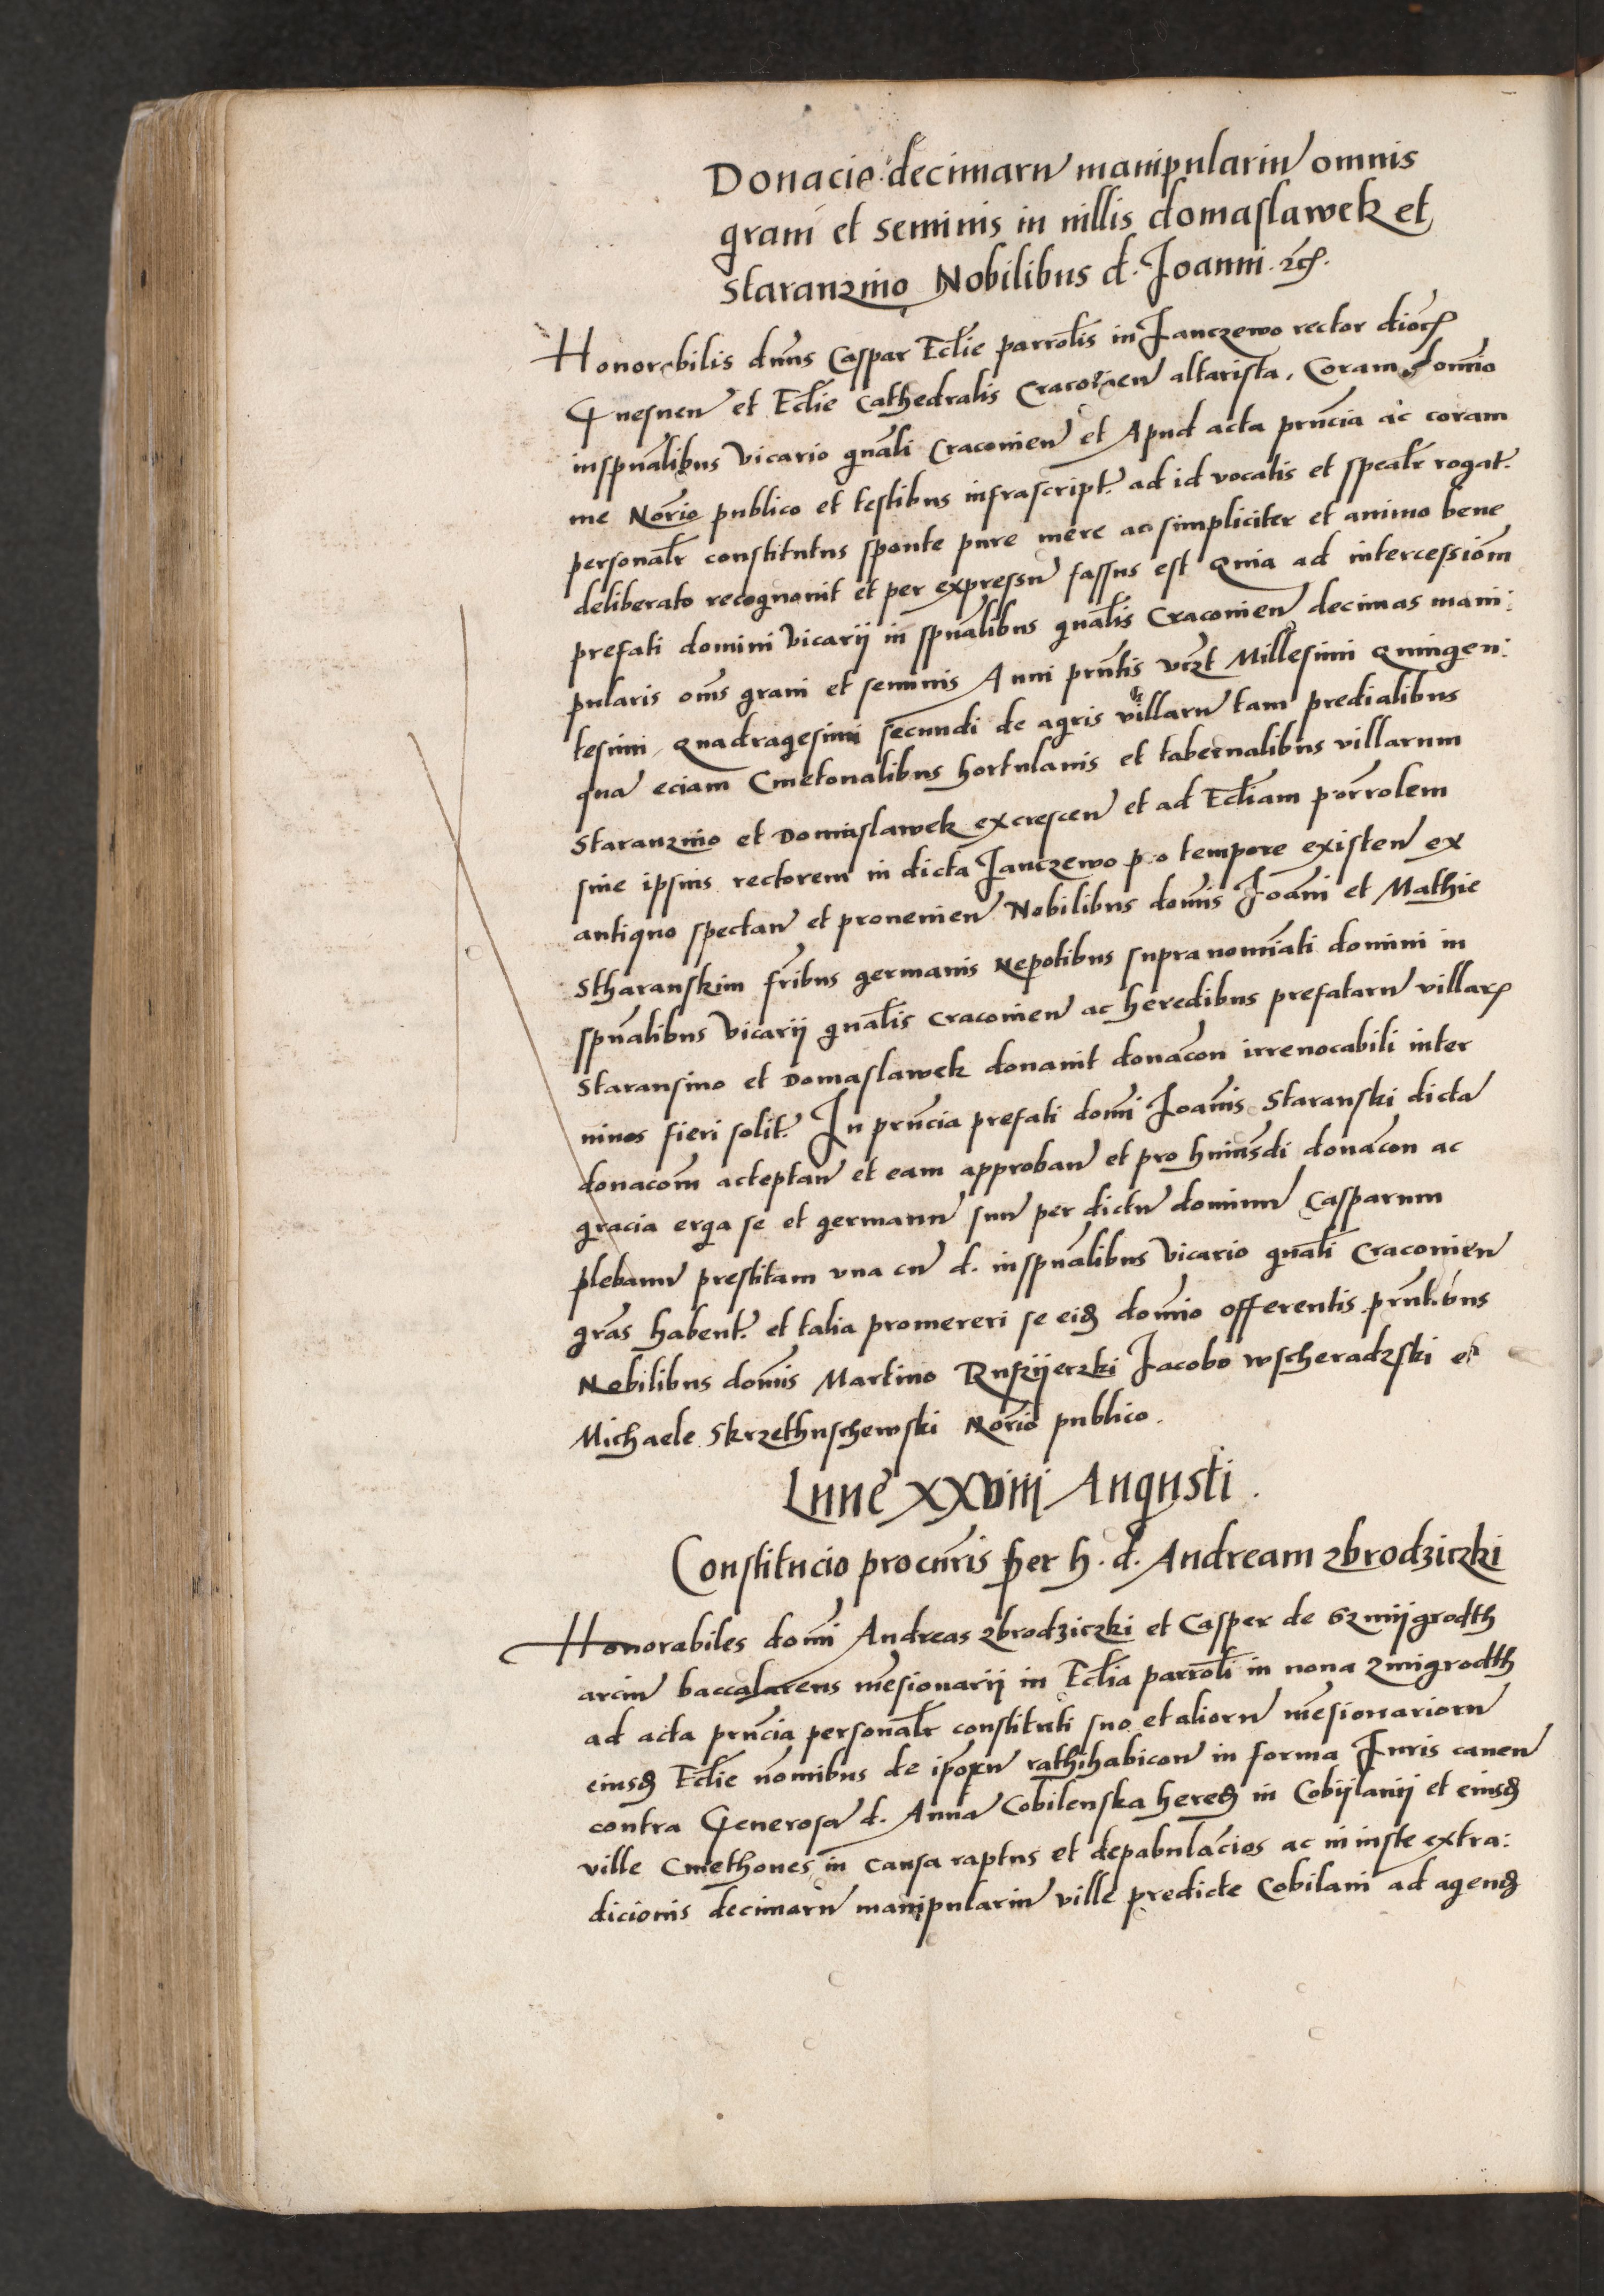 Donacio decimaru manipulariu omnis
grani et seminis in villis domaslawek et
Staranzino Nobilibus d. Joanni. etc.
Honorabilis dnus Caspar Eclie parrolis in Janczewo rector dioc
Gnesnen et Eclie Cathedralis Cracovien altarista, Coram domio
inspualibus Vicario gnali Cracovien et Apud acta pruncia ac coram
me Norio publico et testibus infrascript. ad id vocatis et spealr rogat.
personalr constitutus sponte pure mere ac simpliciter et animo bene
deliberato recognovit et per expressu fassus est Quia ad intercessiom
prefati domini Vicarij in spualibus gnalis Cracovien decimas mani:
pularis oms grani et seminis Anni prntis vczt Millesimi Quingen:
tesimi Quadragesimi secundi de agris villaru tam predialibus
qua eciam Cmetonalibus hortulanis et tabernalibus villarum
Staranzino et Domaslawek excrescen et ad Ecliam porrolem
sive ipsius rectorem in dicta Janczewo pro tempore existen ex
antiquo spectan et provenien Nobilibus domis Joani et Mathie
Stharanskim fribus germanis Nepotibus supranomiati domini in
spualibus Vicarij gnalis Cracovien ac heredibus prefataru villar
Staransino et Domaslawek donavit donacon irrevocabili inter
vivos fieri solit. In pruncia prefati domi Joanis Staranski dicta
donacom acceptan et eam approban et pro huiusdi donacon ac
gracia erga se et germanu suu per dictu dominu Casparum
plebanu prestitam una cu d. inspualibus Vicario gnali Cracovien
gras habent. et talia promereri se eid domio offerentis prntibus
Nobilibus domis Martino Ruszijeczki Jacobo wscheradzski et
Michaele Skrzethuschewski Norio publico.
Lune XXVIII Augusti.
Constitucio procuris per h. d. Andream zbrodziczki
Honorabiles domi Andreas zbrodziczki et Casper de Szmijgrodth
arciu baccalareus mesionarij in Eclia parroli in nova zmigrodth
ad acta pruncia personalr constituti suo et alioru mesionarioru
eiusd Eclie nomibus de iporu rathihabicon in forma Juris caven
contra Generosa d. Anna Cobilenska hered in Cobijlanij et eiusd
ville Cmethones in causa raptus et depabulacios ac iniuste extra:
dicionis decimaru manipulariu ville predicte Cobilani ad agend